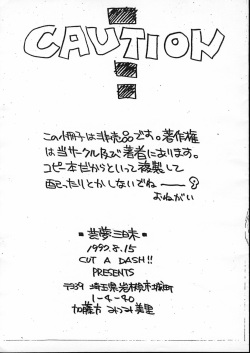 CAUTION!
この小冊子は非売品です。著作権
は当サークル及び著者にあります。
コピー本だからといって複製して
配ったりとかしないでね──!
おねがい
■芸夢三昧■
1992.8.15
CUT A DASH!!
PRESENTS
〒339 埼玉県岩槻市
1-4-40
加藤方 みつみ美里